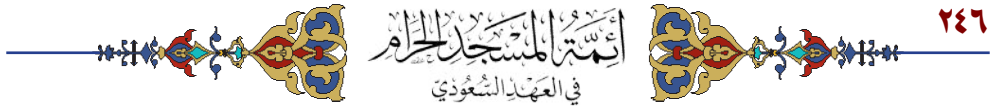 ٢٤٦
أَئِمَّةُ المَسْجِدِ الحَرَامِ
في العَهْدِ السُّعُوْدِيّ